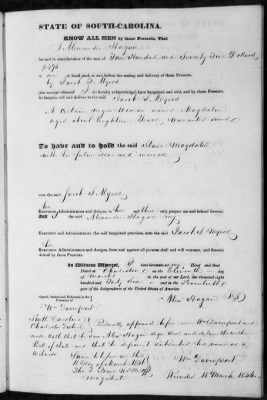 STATE OF SOUTH-CAROLINA.
KNOW ALL MEN by these Presents, That
I Alexander Hagan
for and in consideration of the sum of Four Hundred and Seventy Five Dollars
to me in hand paid, at and before the sealing and delivery of these Presents,
by Jacob S. Myers
(the receipt whereof I do hereby acknowledge) have bargained and sold, and by these Presents
do bargain, sell and deliver to the said Jacob S. Myers
A Certain negro Woman named Magdalen
aged about Eighteen Years, warranted sound
To have and to hold the said Slave Magdalen
with her future issue and increase
unto the said Jacob S Myers
his
Executors, Administrators and Assigns, to his and their only proper use and behoof forever.
And I the said Alexander Hagan my
Executors and Administrators, the said bargained premises, unto the said Jacob S. Myers
his
Executors, Administrators and Assigns, from and against all persons shall and will warrant, and forever
defend by these Presents.
In Witness Whereof, I have hereunto set my Hand and Seal
Dated at Charleston on the Eleventh day
of March in the year of our Lord, one thousand eight
hundred and Forty and in the Seventieth
year of the Independence of the United States of America.
Signed, Sealed and Delivered in the
Presence of
Alex Hagan
Wm Davenport
South Carolina
Charleston District Personally appeared before me Wm Davenport and
made oath that he saw Alex Hagan sign Seal and deliver the within
Bill of Sale and that he
Witness
Sworn to before me this
Wm Davenport
Recorded 18 March 1846